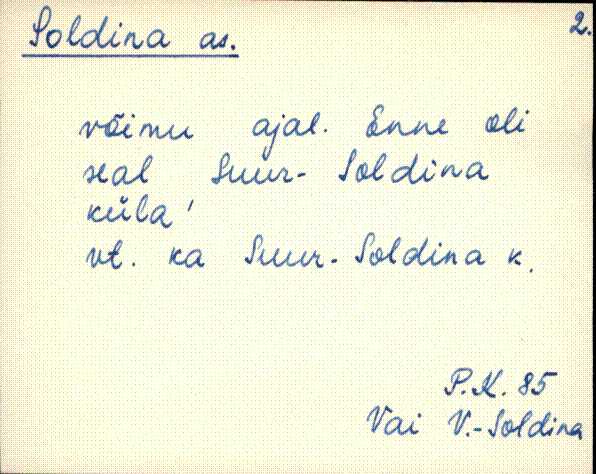 Soldina as.
2.
võimu ajal. Enne oli
seal Suur-Soldina
küla'
vt. ka Suur-Soldina k.
P.K. 85
Vai V.-Soldina